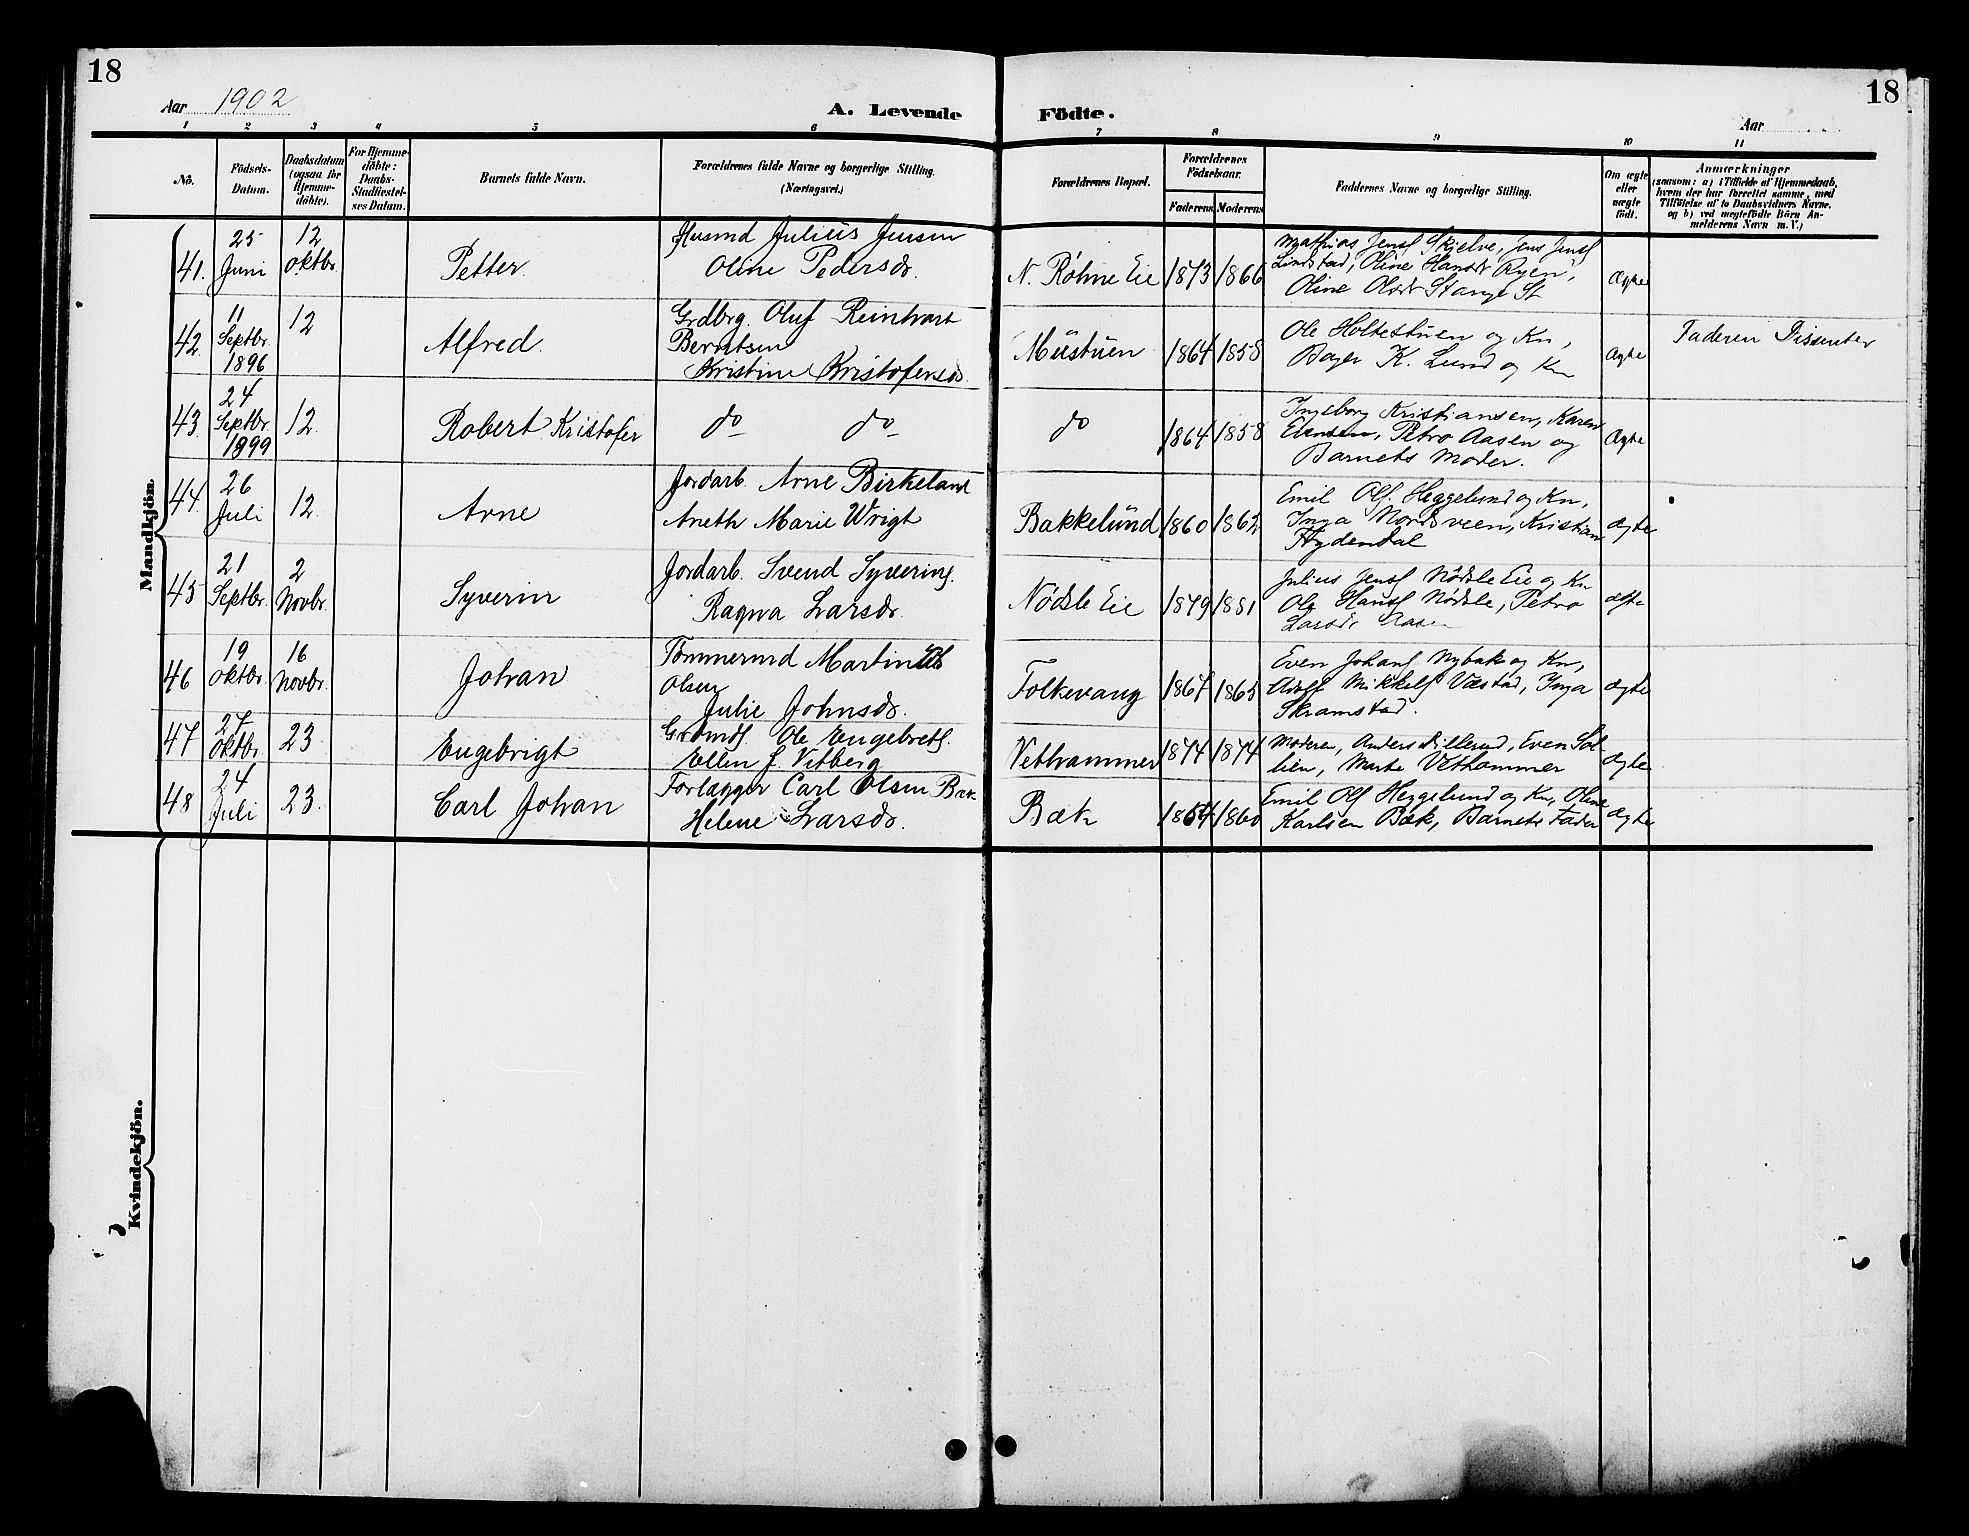 18
18
Aar 1902
A. Levende
Födte.
Aar
1 2 3 4 5 6 7 8 9 10 11
No.
Födsels-
Datum.
Daabsdatum
(ogsaa for
Hjemme-
döbte).
For Hjemme-
döbte:
Daabs-
Stadfæstel-
ses Datum.
Barnets fulde Navn.
Forældrenes fulde Navne og borgerlige Stilling.
(Næringsvei.)
Forældrenes Bopæl.
Forældrenes
Födselsaar.
Faderens Moderens
Faddernes Navne og borgerlige Stilling.
Om ægte
eller
uægte
födt.
Anmærkninger
(saasom: a) i Tilfælde af Hjemmedaab,
hvem der har forrettet samme, med
Tilföielse af to Daabsvidners Navne,
og b) ved uægtefödte Börn An-
melderens Navn m. V.)
Mandkjön.
41.
25
Juni
12
Oktbr.
Petter
Husmd Julius Jensen
Oline Pedersdr.
N. Röhne Eie
1873 1866
Mathias Jensf Skjelve, Jens Jensf
Lindstad, Oline Hansdr Ryen,
Oline Olsdr Stange St
Ægte
42.
11
Septbr.
1896
12
Alfred
Grdbrg. Oluf Reinhart
Berntsen
Kristine Kristofersdr.
Müstüen
1864 1858
Ole Holtestuen og Kn,
K. Lund og Kn
Ægte
Faderen Dissenter
43.
24
Septbr.
1899
12.
Robert Kristofer
do do
do
1864 1858
Ingeborg Kristiansen, Karen
Evensen, Petra Aasen og
Barnets Moder.
Ægte
44.
26
Juli
12.
Arne
Jordarb. Arne Birkeland
Aneth Marie Wrigt
Bakkelünd
1860 1862
Emil Olf. Heggelund og Kn,
Inga Nordsveen, Kristian
Hydendal
Ægte
45
21
Septbr.
2
Novbr.
Syverin
Jordarb. Svend Syverinf.
Ragna Larsdr.
Nödsle Eie
1879 1881
Julius Jensf Nödsle Eie og Kn
Ole Hansf Nödsle, Petra
Larsdr Aasen
Ægte
46
19
Oktbr.
16
Novbr.
Johan
Tömmermd Martin
Olsen
Julie Johnsdr.
Folkevang
1867 1865
Even Johanf Nybak og Kn,
Adolf Mikkelf Vestad, Inga
Skramstad.
Ægte
47
27
Oktbr.
23
Engebrigt
Grdmdf. Ole Engebretf.
Ellen J. Vetberg
Vethammer
1874 1874
Moderen, Anders Lillerud, Even Sol-
lien, Marte Vethammer
Ægte
48
24
Juli
23.
Carl Johan
Forlægger Carl Olsen Bæk
Helene Larsdr.
Bæk
1864 1860
Emil Olf Heggelund og Kn, Oline
Karlsen Bæk, Barnets Fader
Ægte
Kvindekjön.